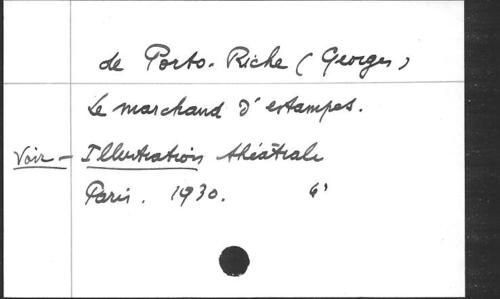 de Porto-Riche (Georges)
Le marchand d'estampes.
Voir - Illustration théâtrale
Paris. 1930.